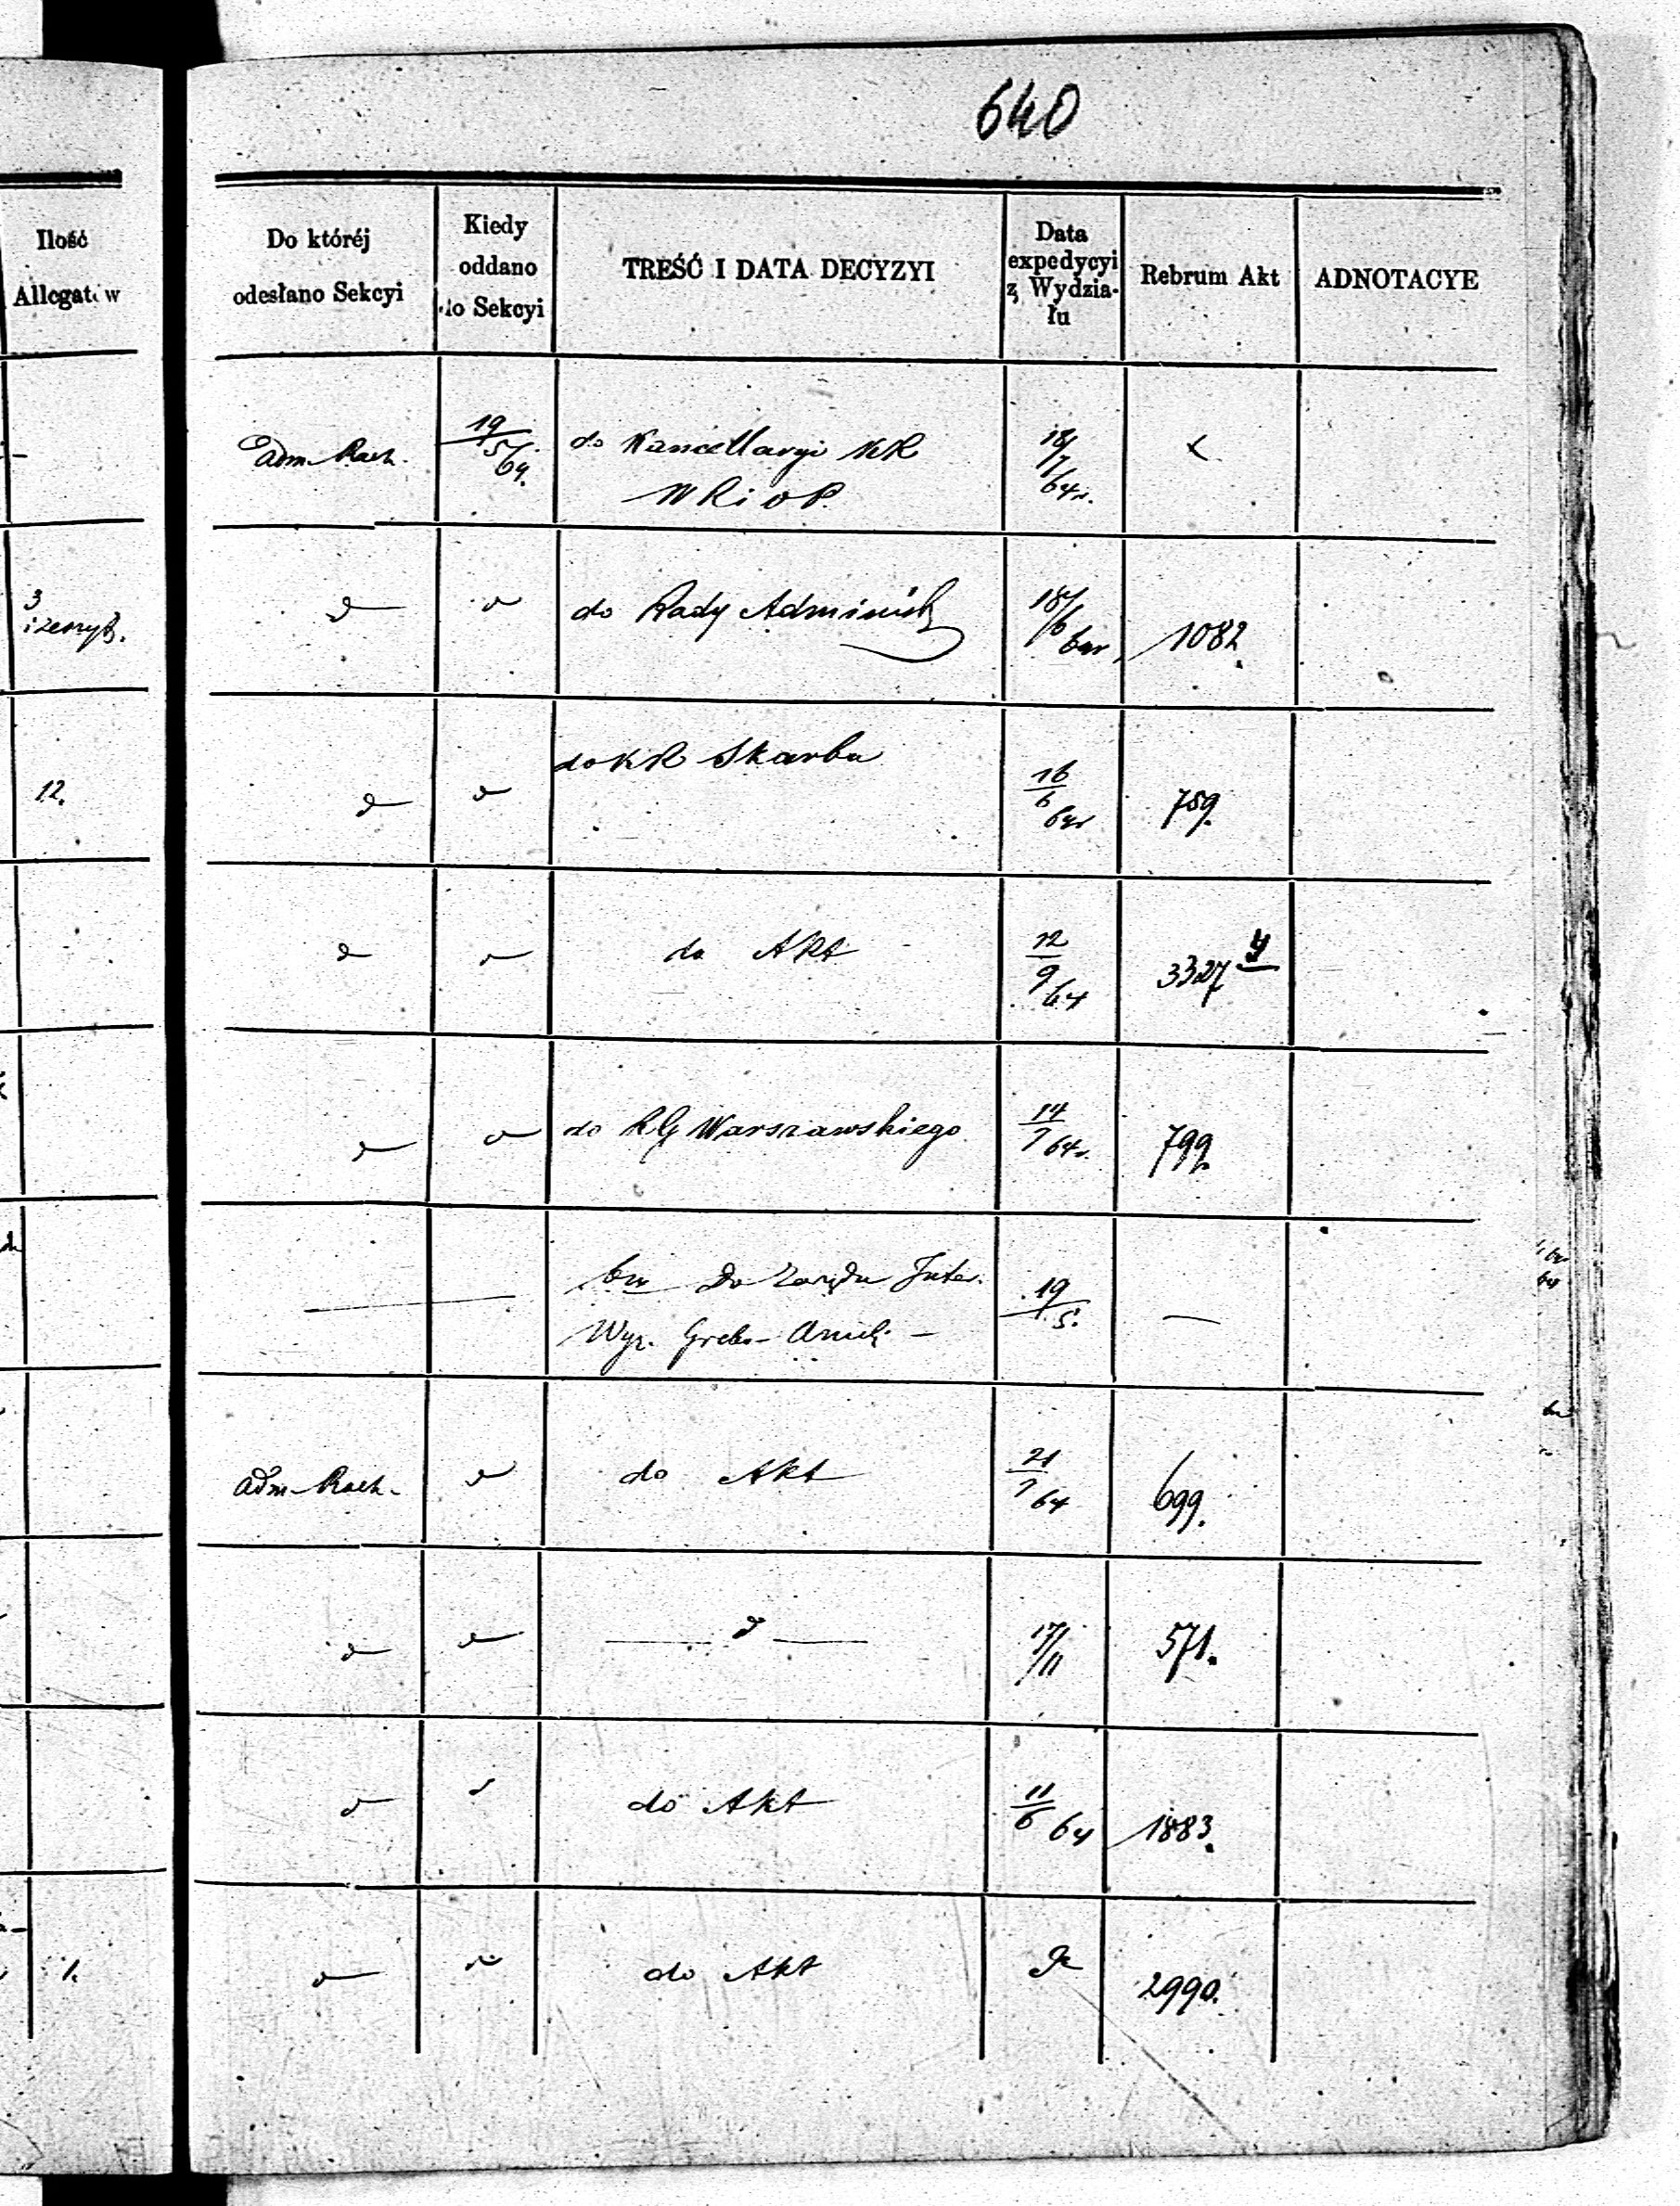 640
Ilość
Allegatów
Do któréj
odesłano Sekcyi
Kiedy
oddano
do Sekcyi
TREŚĆ I DATA DECYZYI
Data
expedycyi
z Wydzia-
łu
Rebrum Akt
ADNOTACYE
Adm. Rach.
19/5 64.
do Kancellaryi KR
WRiOP.
18/7 64r.
3
i zeszyt.
do Rady Administ
18/6 64r
1082
12.
do KR Skarbu
16/6 64r
759.
do Akt
12/9 64
3327
do RG Warszawskiego
14/7 64r.
799.
do Zarządu Inter.
Wyz. Greko-
19/5.
—
Adm. Rach.
do Akt
21/7 64
699.
17/11
571.
do Akt
11/6 64
1883.
1.
do Akt
2990.